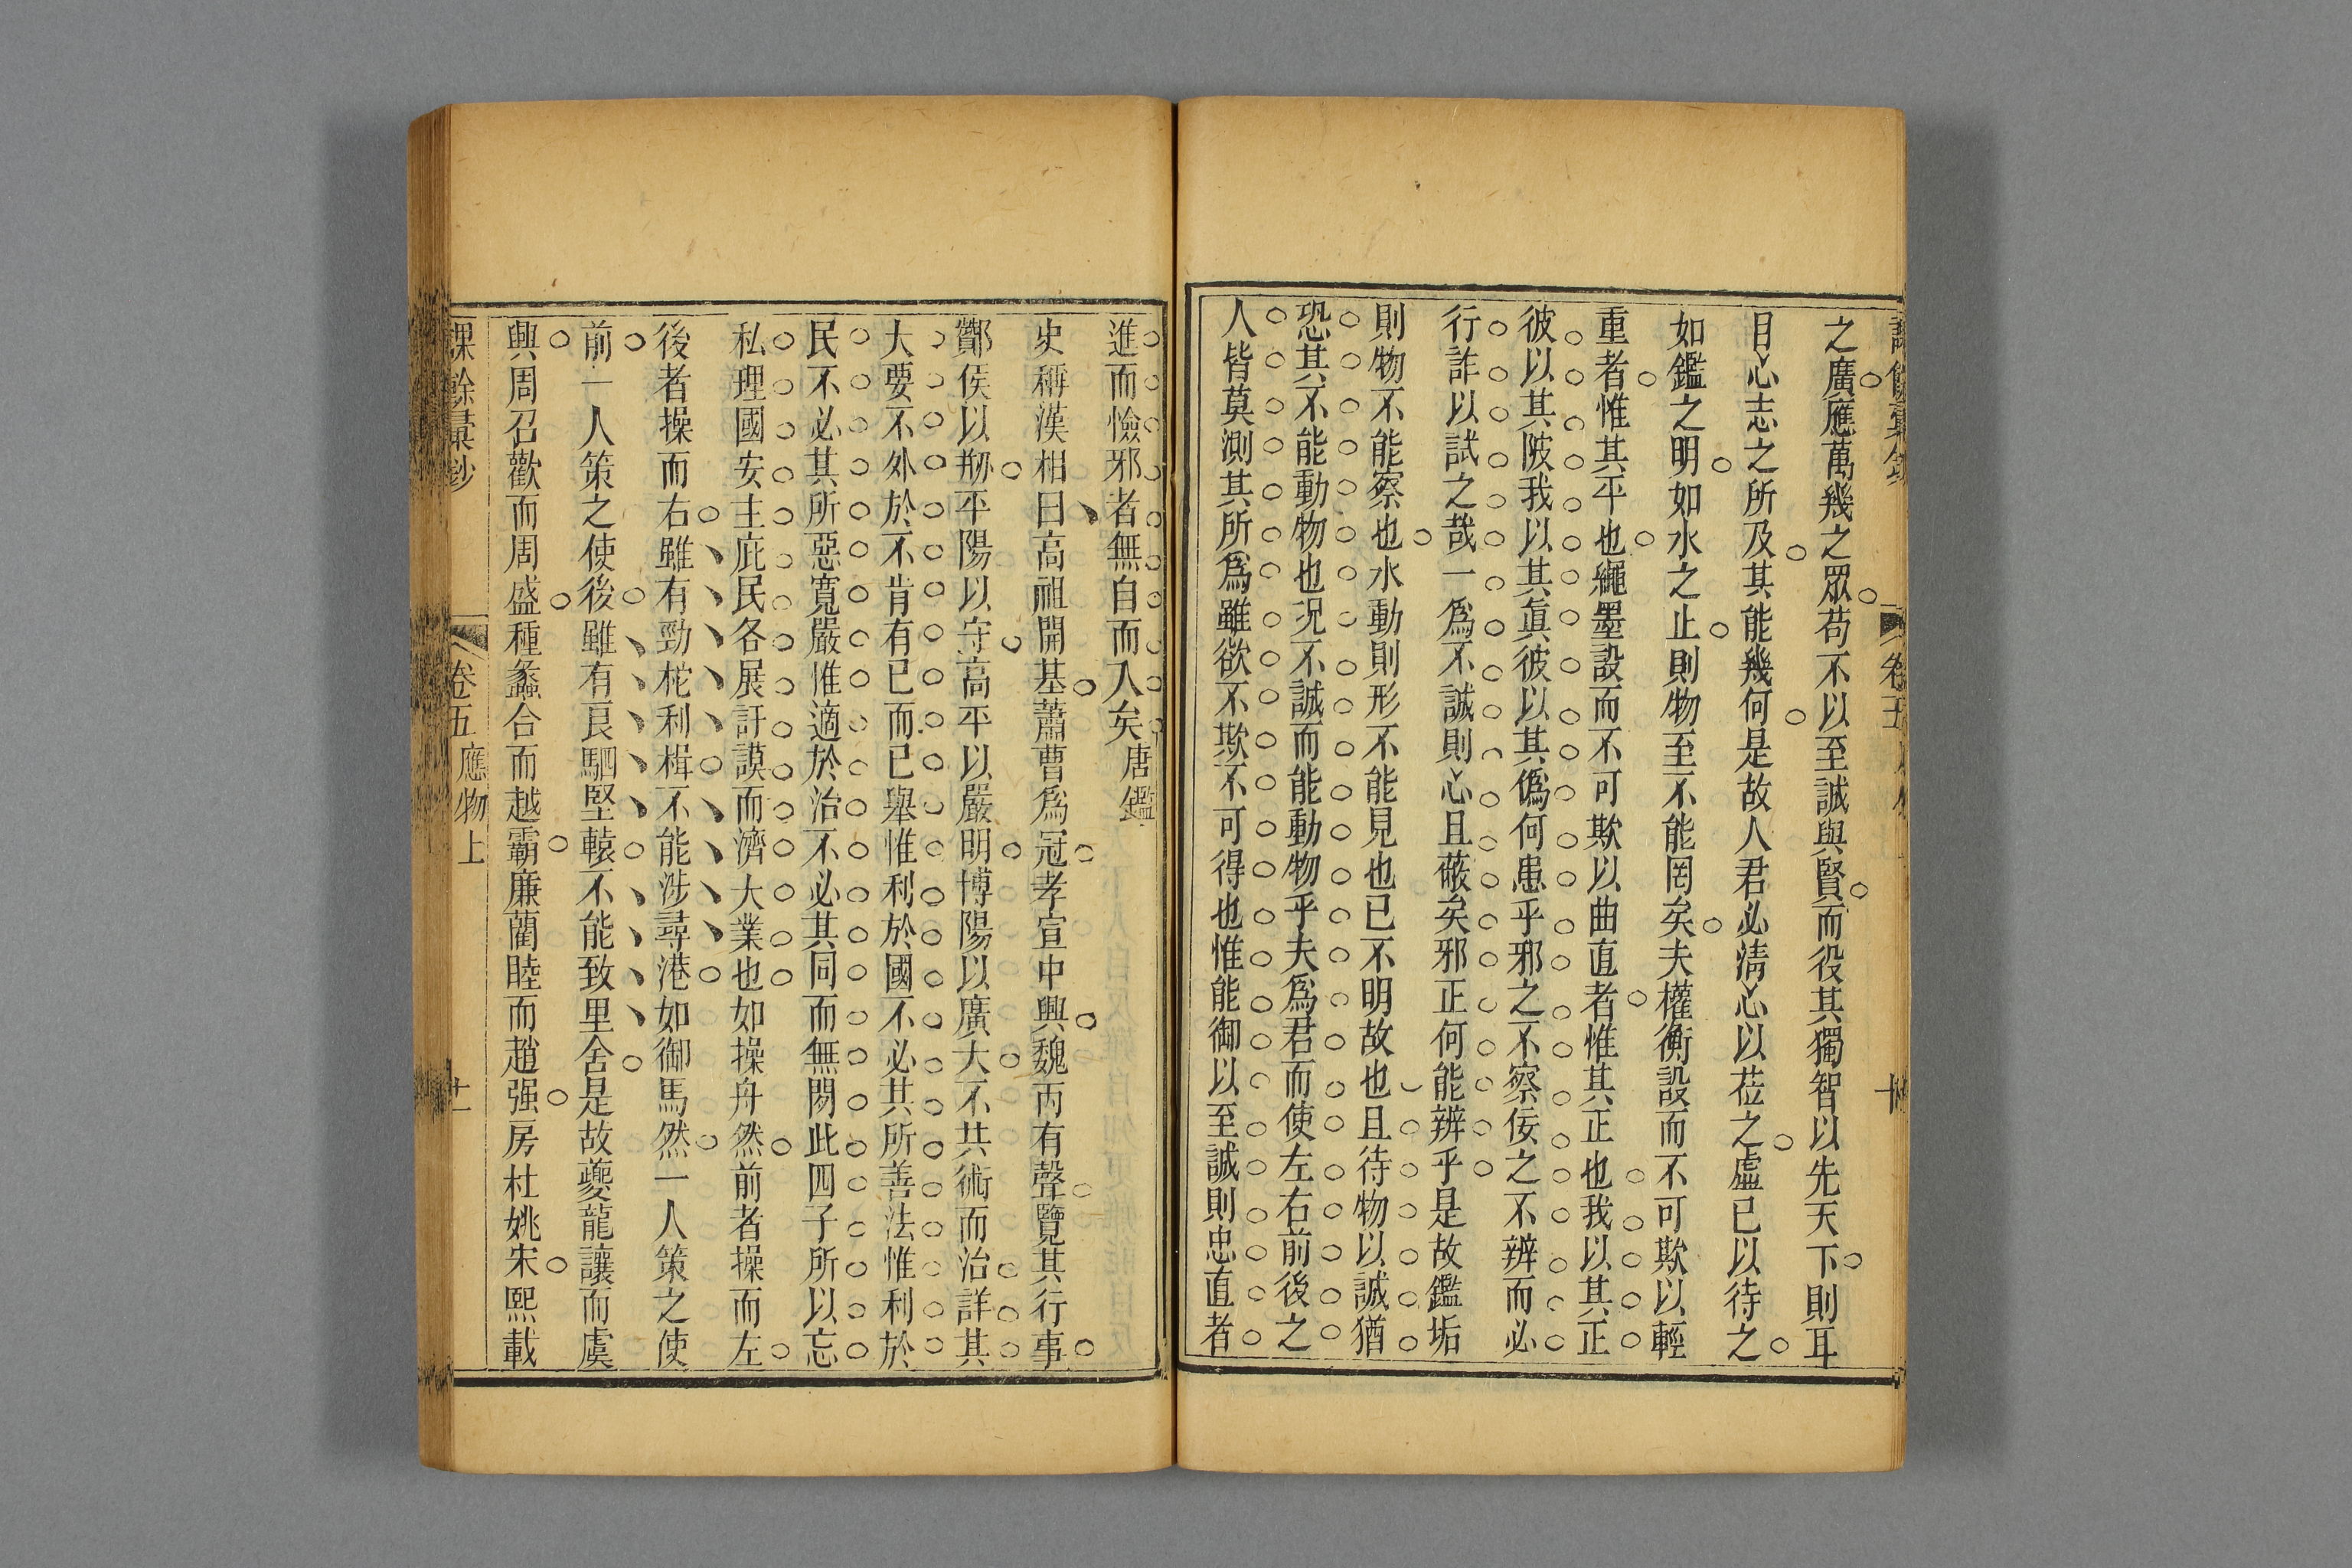 之廣應萬幾之眾苟不以至誠與賢而役其獨智以先天下則耳
目心志之所及其能幾何是故人君必淸心以莅之虛已以待之
如鑑之明如水之止則物至不能罔矣夫權衡設而不可欺以輕
重者惟其平也繩墨設而不可欺以曲直者惟其正也我以其正
彼以其陂我以其眞彼以其僞何患乎邪之不察佞之不辨而必
行詐以試之哉一爲不誠則心且蔽矣邪正何能辨乎是故鑑垢
則物不能察也水動則形不能見也已不明故也且待物以誠猶
恐其不能動物也況不誠而能動物乎夫爲君而使左右前後之
人皆莫測其所爲雖欲不欺不可得也惟能御以至誠則忠直者
進而憸邪者無自而入矣唐鑑
史稱漢相曰高祖開基蕭曹爲冠孝宣中興魏丙有聲覽其行事
酇侯以刱平陽以守高平以嚴明博陽以廣大不共術而治詳其
大要不外於不肯有已而已舉惟利於國不必其所善法惟利於
民不必其所惡寬嚴惟適於治不必其同而無閡此四子所以忘
私理國安主庇民各展訏謨而濟大業也如操舟然前者操而左
後者操而右雖有勁柁利楫不能涉尋港如御馬然一人策之使
前一人策之使後雖有良駟堅轅不能致里舍是故夔龍讓而虞
興周召歡而周盛種蠡合而越霸廉藺睦而趙强房杜姚宋熙載
課餘彚鈔 卷五 應物上 十一